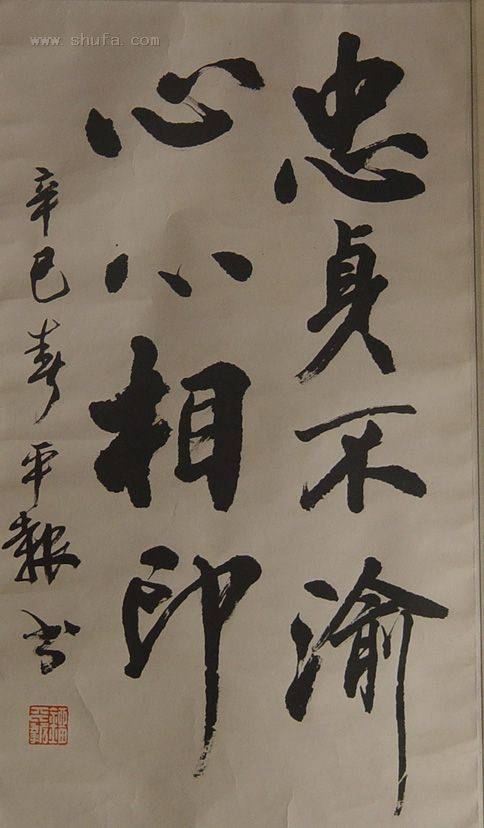 忠贞不渝
心心相印
辛巳春平報书
www.shufa.com